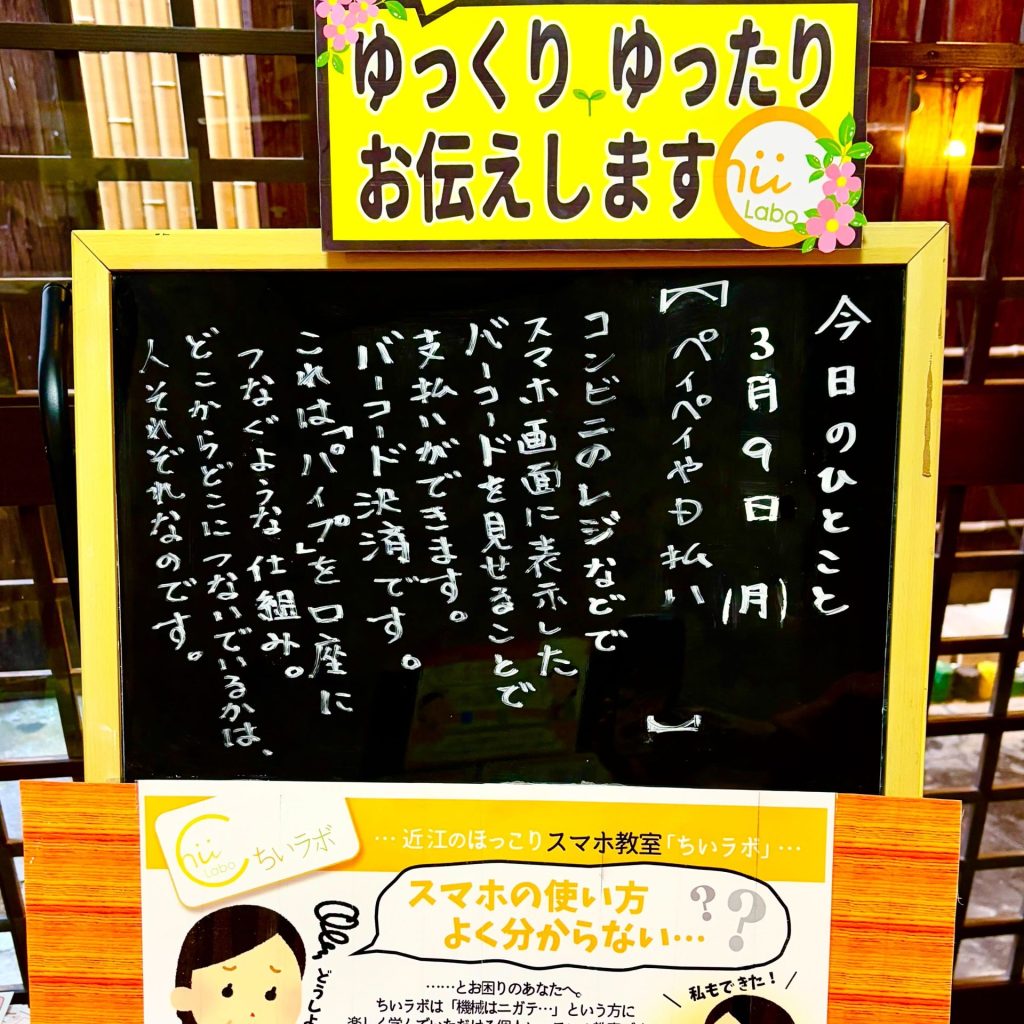 ゆっくり ゆったり
お伝えします
hii
Labo
今日のひとこと
3月9日(月)
【ペイペイやD払い】
コンビニのレジなどで
スマホ画面に表示した
バーコードを見せることで
支払いができます。
バーコード決済です。
これは「パイプ」を口座に
つなぐような仕組み。
どこからどこにつないでいるかは、
人それぞれなのです。
Chii
Labo
ちいラボ
…近江のほっこりスマホ教室「ちいラボ」…
スマホの使い方
よく分からない…
??
どうしよ
……とお困りのあなたへ。
ちいラボは「機械はニガテ…」という方に
私もできた!